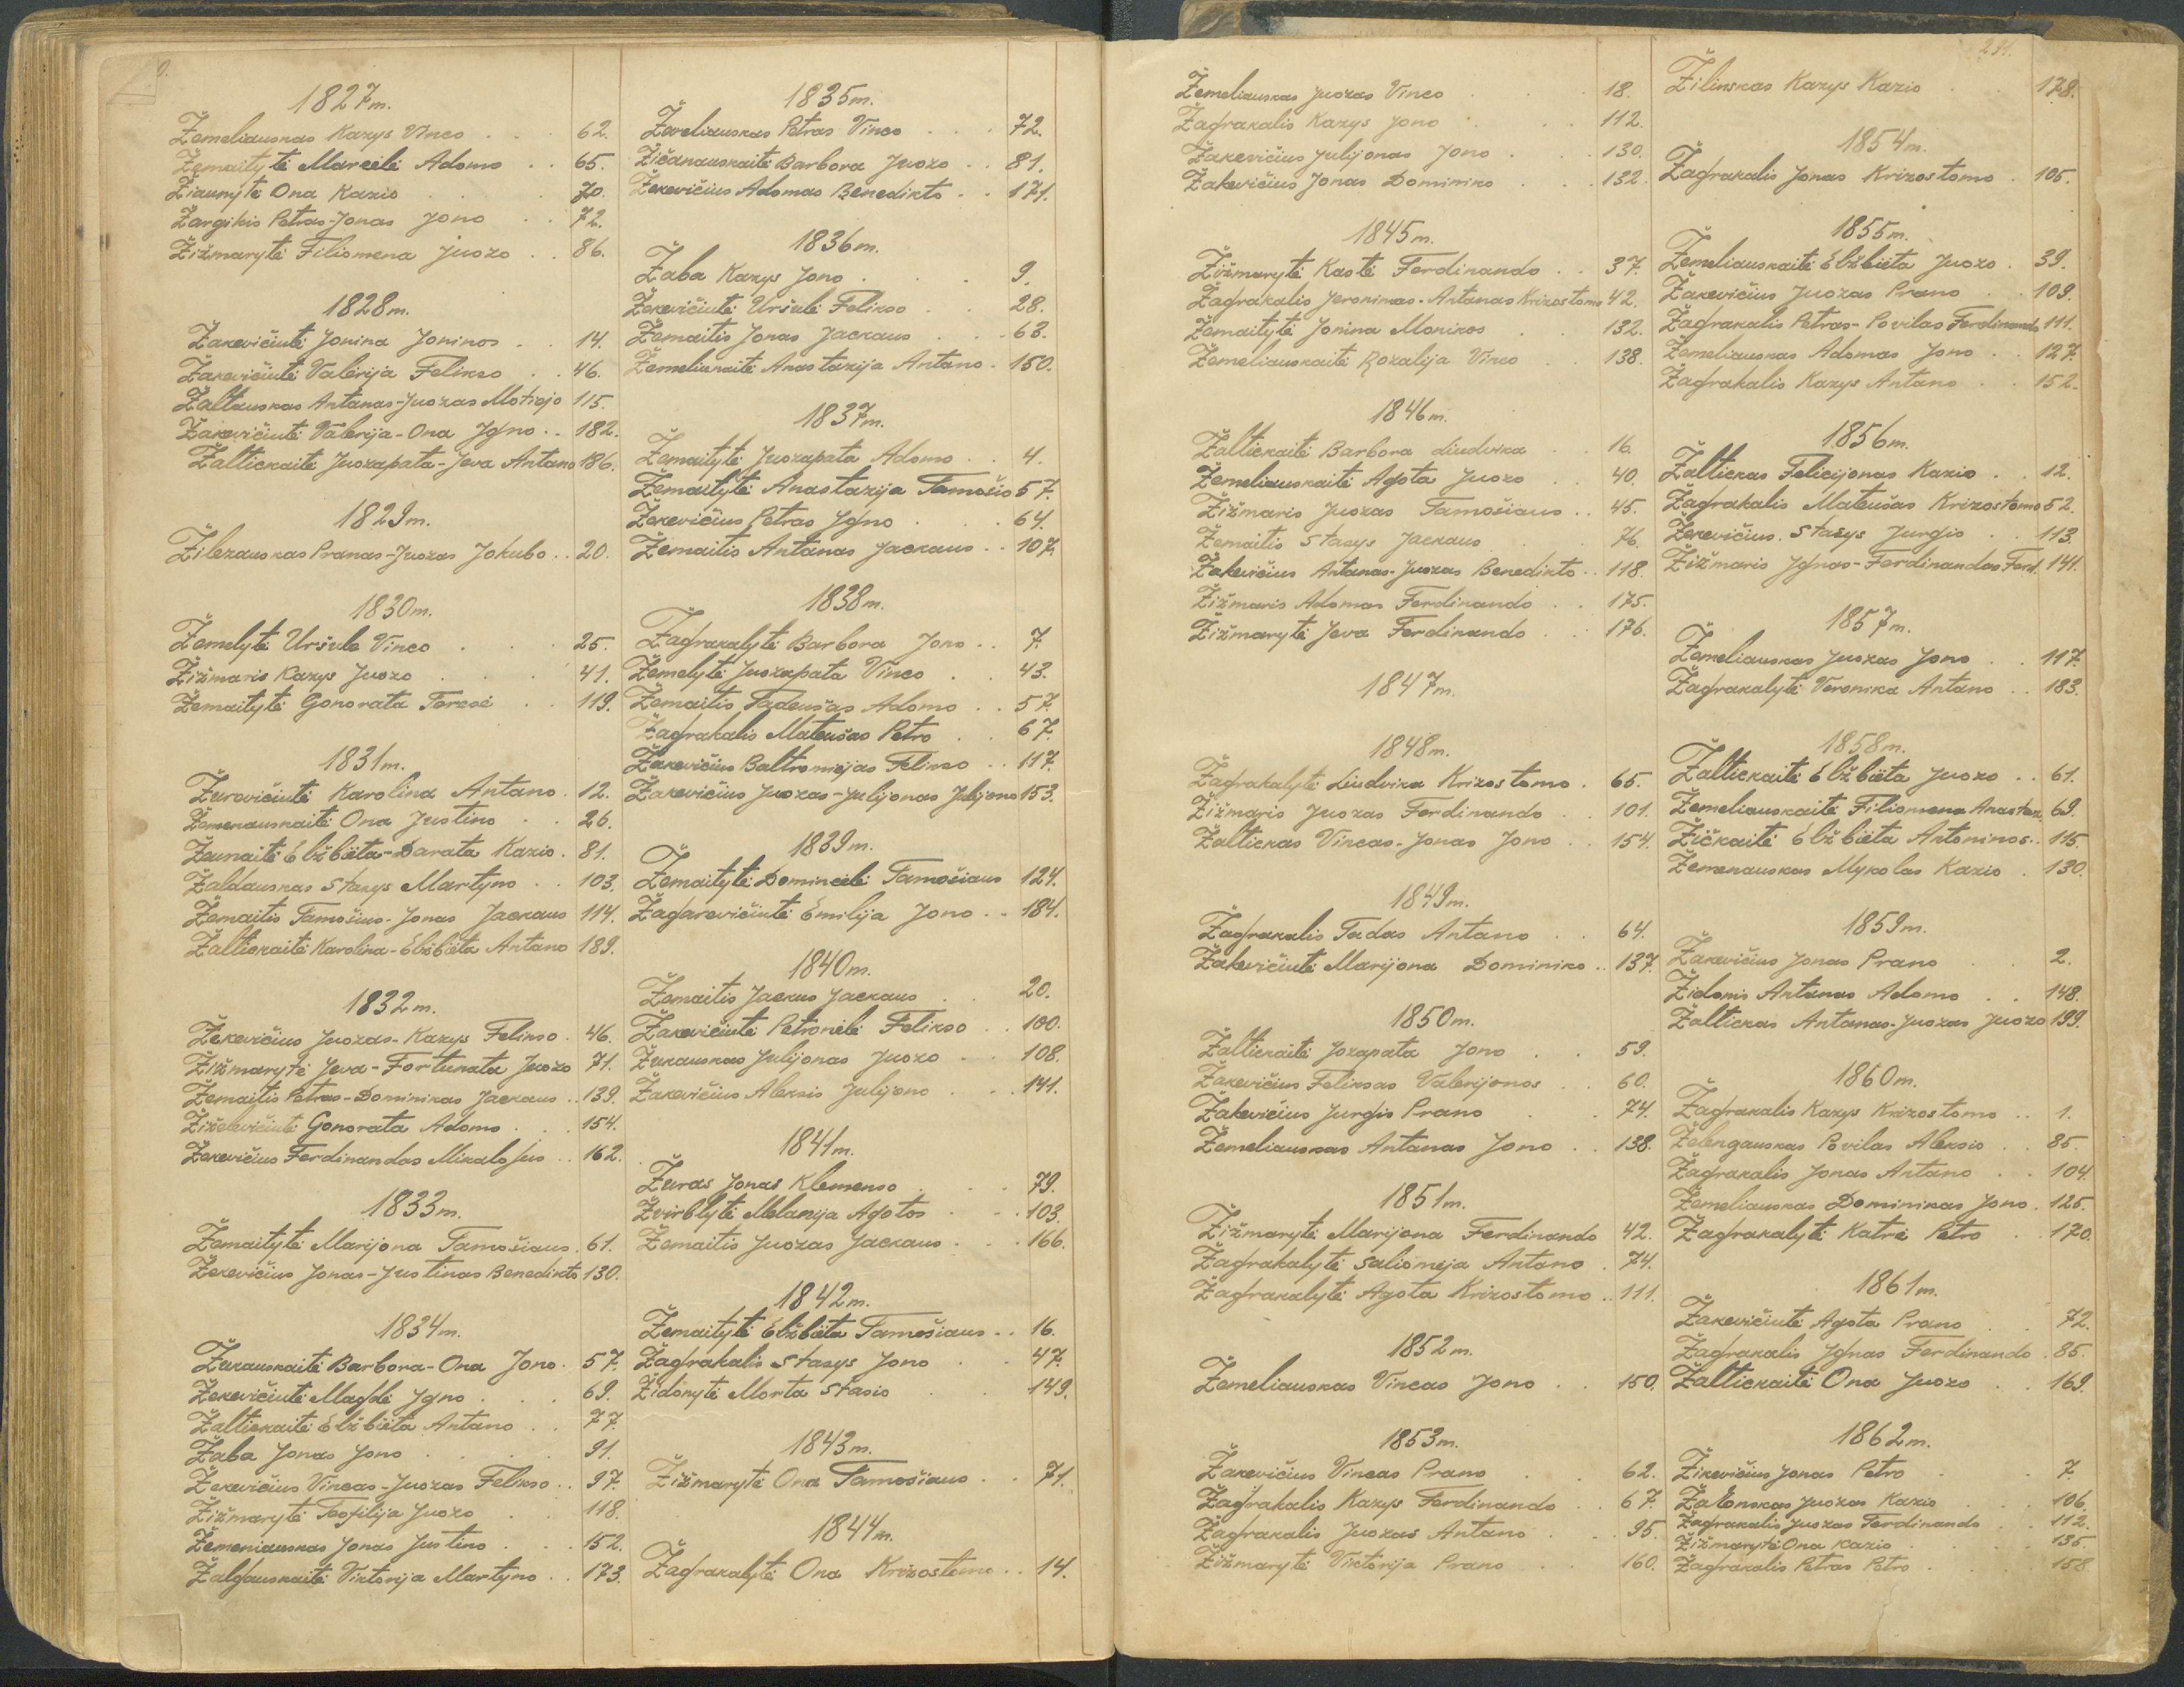 1827m.
Žemeliauskas Kazys Vinco . . . 62.
Žemaitytė Marcelė Adomo . . 65.
Žiaunytė Ona Kazio . . . 70.
Žargikis Petras-Jonas Jono . . 72.
Žižmarytė Filiomena Juozo . . 86.
1828m.
Žakevičiutė Jonina Joninos . . 14.
Žakevičiutė Valerija Felikso . . 46.
Žaltauskas Antanas-Juozas Motiejo 115.
Žakevičiutė Valerija-Ona Igno . . 182.
Žaltickaitė Juozapata-Jeva Antano 186.
1829m.
Žilezauskas Pranas-Juozas Jokubo . . 20.
1830m.
Žemelytė Uršulė Vinco . . . 25.
Žižmaris Kazys Juozo . . . 41.
Žemaitytė Gonorata Teresė . . 119.
1831m.
Žurovičiutė Karolina Antano . 12.
Žemenauskaitė Ona Justino . . 26.
Žeunaitė Elžbieta-Darata Kazio . 81.
Žaldauskas Stasys Martyno . . 103.
Žemaitis Tamošius-Jonas Jackaus 114.
Žaltickaitė Karolina-Elžbieta Antano 189.
1832m.
Žekevičius Juozas-Kazys Felikso . 46.
Žižmarytė Jeva-Fortunata Juozo 71.
Žemaitis Petras-Dominikas Jackaus . . 139.
Žiželevičiutė Gonorata Adomo . . . 154.
Žekevičius Ferdinandas Mikalojus . . 162.
1833m.
Žemaitytė Marijona Tamošiaus . 61.
Žekevičius Jonas-Justinas Benedikto 130.
1834m.
Žukauskaitė Barbora-Ona Jono . 57.
Žekevičiutė Magdė Igno . . . 69.
Žaltickaitė Elžbieta Antano . . 77.
Žaba Jonas Jono . . . . 91.
Žekevičius Vincas-Juozas Felikso . . 97.
Žižmarytė Teofilija Juozo . . 118.
Žemeniauskas Jonas Justino . . . 152.
Žalgauskaitė Viktorija Martyno . . 173.
1835m.
Ževeliauskas Petras Vinco . . . 72.
Žičanauskaitė Barbora Juozo . . 81.
Žekevičius Adomas Benedikto . . 171.
1836m.
Žaba Kazys Jono . . . 9.
Žekevičiutė Uršulė Felikso . . 28.
Žemaitis Jonas Jackaus . . . 63.
Žemeliukaitė Anastazija Antano . 150.
1837m.
Žemaitytė Juozapata Adomo . . 4.
Žemaitytė Anastazija Tamošio 57.
Žekevičius Petras Igno . . . 64.
Žemaitis Antanas Jackaus . . 107.
1838m.
Žagrakalytė Barbora Jono . . 7.
Žemelytė Juozapata Vinco . . 43.
Žemaitis Tadeušas Adomo . . 57.
Žagrakalis Mateušas Petro . . 67.
Žakevičius Baltromiejas Felikso . . 117.
Žakevičius Juozas-Julijonas Julijono 153.
1839m.
Žemaitytė Domincėlė Tamošiaus 124.
Žagarevičiutė Emilija Jono . . 184.
1840m.
Žemaitis Jackus Jackaus . . 20.
Žakevičiutė Petronėlė Felikso . . 100.
Žukauskas Julijonas Juozo . . 108.
Žakevičius Aleksis Julijono . . . 141.
1841m.
Žuras Jonas Klemenso . . . 79.
Žvirblytė Melanija Agotos . . . 103.
Žemaitis Juozas Jackaus . . . 166.
1842m.
Žemaitytė Elžbieta Tamošiaus . . 16.
Žagrakalis Stasys Jono . . 47.
Židonytė Morta Stasio . . 149.
1843m.
Žižmarytė Ona Tamošiaus . . 71.
1844m.
Žagrakalytė Ona Krizostomo . . 14.
Žemeliauskas Juozas Vinco . . . 18.
Žagrakalis Kazys Jono . . . 112.
Žakevičius Julijonas Jono . . . 130.
Žakevičius Jonas Dominiko . . . 132.
1845m.
Žižmarytė Kastė Ferdinando . . 37.
Žagrakalis Jeronimas-Antanas Krizostomo 42.
Žemaitytė Jonina Monikos . . 132.
Žemeliauskaitė Rozalija Vinco . 138.
1846m.
Žaltickaitė Barbora Liudvika . . 16.
Žemeliauskaitė Agota Juozo . . 40.
Žižmaris Juozas Tamošiaus . . 45.
Žemaitis Stasys Jackaus . . 76.
Žakevičius Antanas-Juozas Benedikto . . 118.
Žižmaris Adomas Ferdinando . . 175.
Žižmarytė Jeva Ferdinando . . 176.
1847m.
1848m.
Žagrakalytė Liudvika Krizostomo . 65.
Žižmaris Juozas Ferdinando . . 101.
Žaltickas Vincas-Jonas Jono . . 154.
1849m.
Žagrakalis Tadas Antano . . 64.
Žakevičiutė Marijona Dominiko . . 137.
1850m.
Žaltickaitė Jozapata Jono . . 59.
Žakevičius Feliksas Valerijonos . . 60.
Žakevičius Jurgis Prano . . 74.
Žemeliauskas Antanas Jono . . 138.
1851m.
Žižmarytė Marijona Ferdinando 42.
Žagrakalytė Saliomeja Antano . 74.
Žagrakalytė Agota Krizostomo . . 111.
1852m.
Žemeliauskas Vincas Jono . . 150.
1853m.
Žakevičius Vincas Prano . . 62.
Žagrakalis Kazys Ferdinando . . 67.
Žagrakalis Juozas Antano . . . 95.
Žižmarytė Victorija Prano . . 160.
231.
Žilinskas Kazys Kazio . . 178.
1854m.
Žagrakalis Jonas Krizostomo . 105.
1855m.
Žemeliauskaitė Elžbieta Juozo . 39.
Žakevičius Juozas Prano . . 109.
Žagrakalis Petras-Povilas Ferdinando 111.
Žemeliauskas Adomas Jono . . 127.
Žagrakalis Kazys Antano . . 152.
1856m.
Žaltickas Felicijonas Kazio . . 12.
Žagrakalis Mateušas Krizostomo 52.
Žekevičius Stasys Jurgio . . 113.
Žižmaris Ignas-Ferdinandas Ferd. 141.
1857m.
Žemeliauskas Juozas Jono . . 117.
Žagrakalytė Veronika Antano . . 183.
1858m.
Žaltickaitė Elžbieta Juozo . . 61.
Žemeliauskaitė Filiomena Anastaz. 69.
Žičkaitė Elžbieta Antoninos . . 115.
Žemenauskas Mykolas Kazio . 130.
1859m.
Žakevičius Jonas Prano . . 2.
Židonis Antanas Adomo . . 148.
Žaltickas Antanas-Juozas Juozo 199.
1860m.
Žagrakalis Kazys Krizostomo . . 1.
Želengauskas Povilas Aleksio . . 85.
Žagrakalis Jonas Antano . . 104.
Žemeliauskas Dominikas Jono . 125.
Žagrakalytė Katrė Petro . . 170.
1861m.
Žakevičiutė Agota Prano . . 72.
Žagrakalis Ignas Ferdinando . 85.
Žaltickaitė Ona Juozo . . 169.
1862m.
Žikevičius Jonas Petro . . 7.
Juozas Kazio . . 106.
Žagrakalis Juozas Ferdinando . . 112.
Žižmarytė Ona Kazio . . . 135.
Žagrakalis Petras Petro . . . 158.